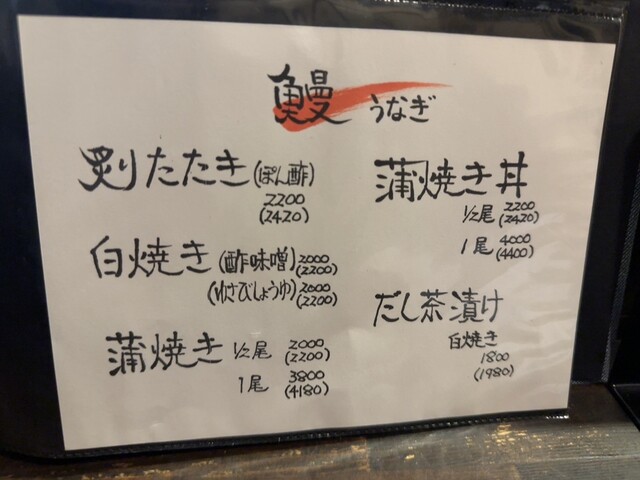 鰻 うなぎ
炙りたたき(ぽん酢)
2200
(2420)
白焼き(酢味噌)2000
(2200)
(わさびしょうゆ)2000
(2200)
蒲焼き 1/2尾 2000
(2200)
1尾 3800
(4180)
蒲焼き丼
1/2尾 2200
(2420)
1尾 4000
(4400)
だし茶漬け
白焼き
1800
(1980)